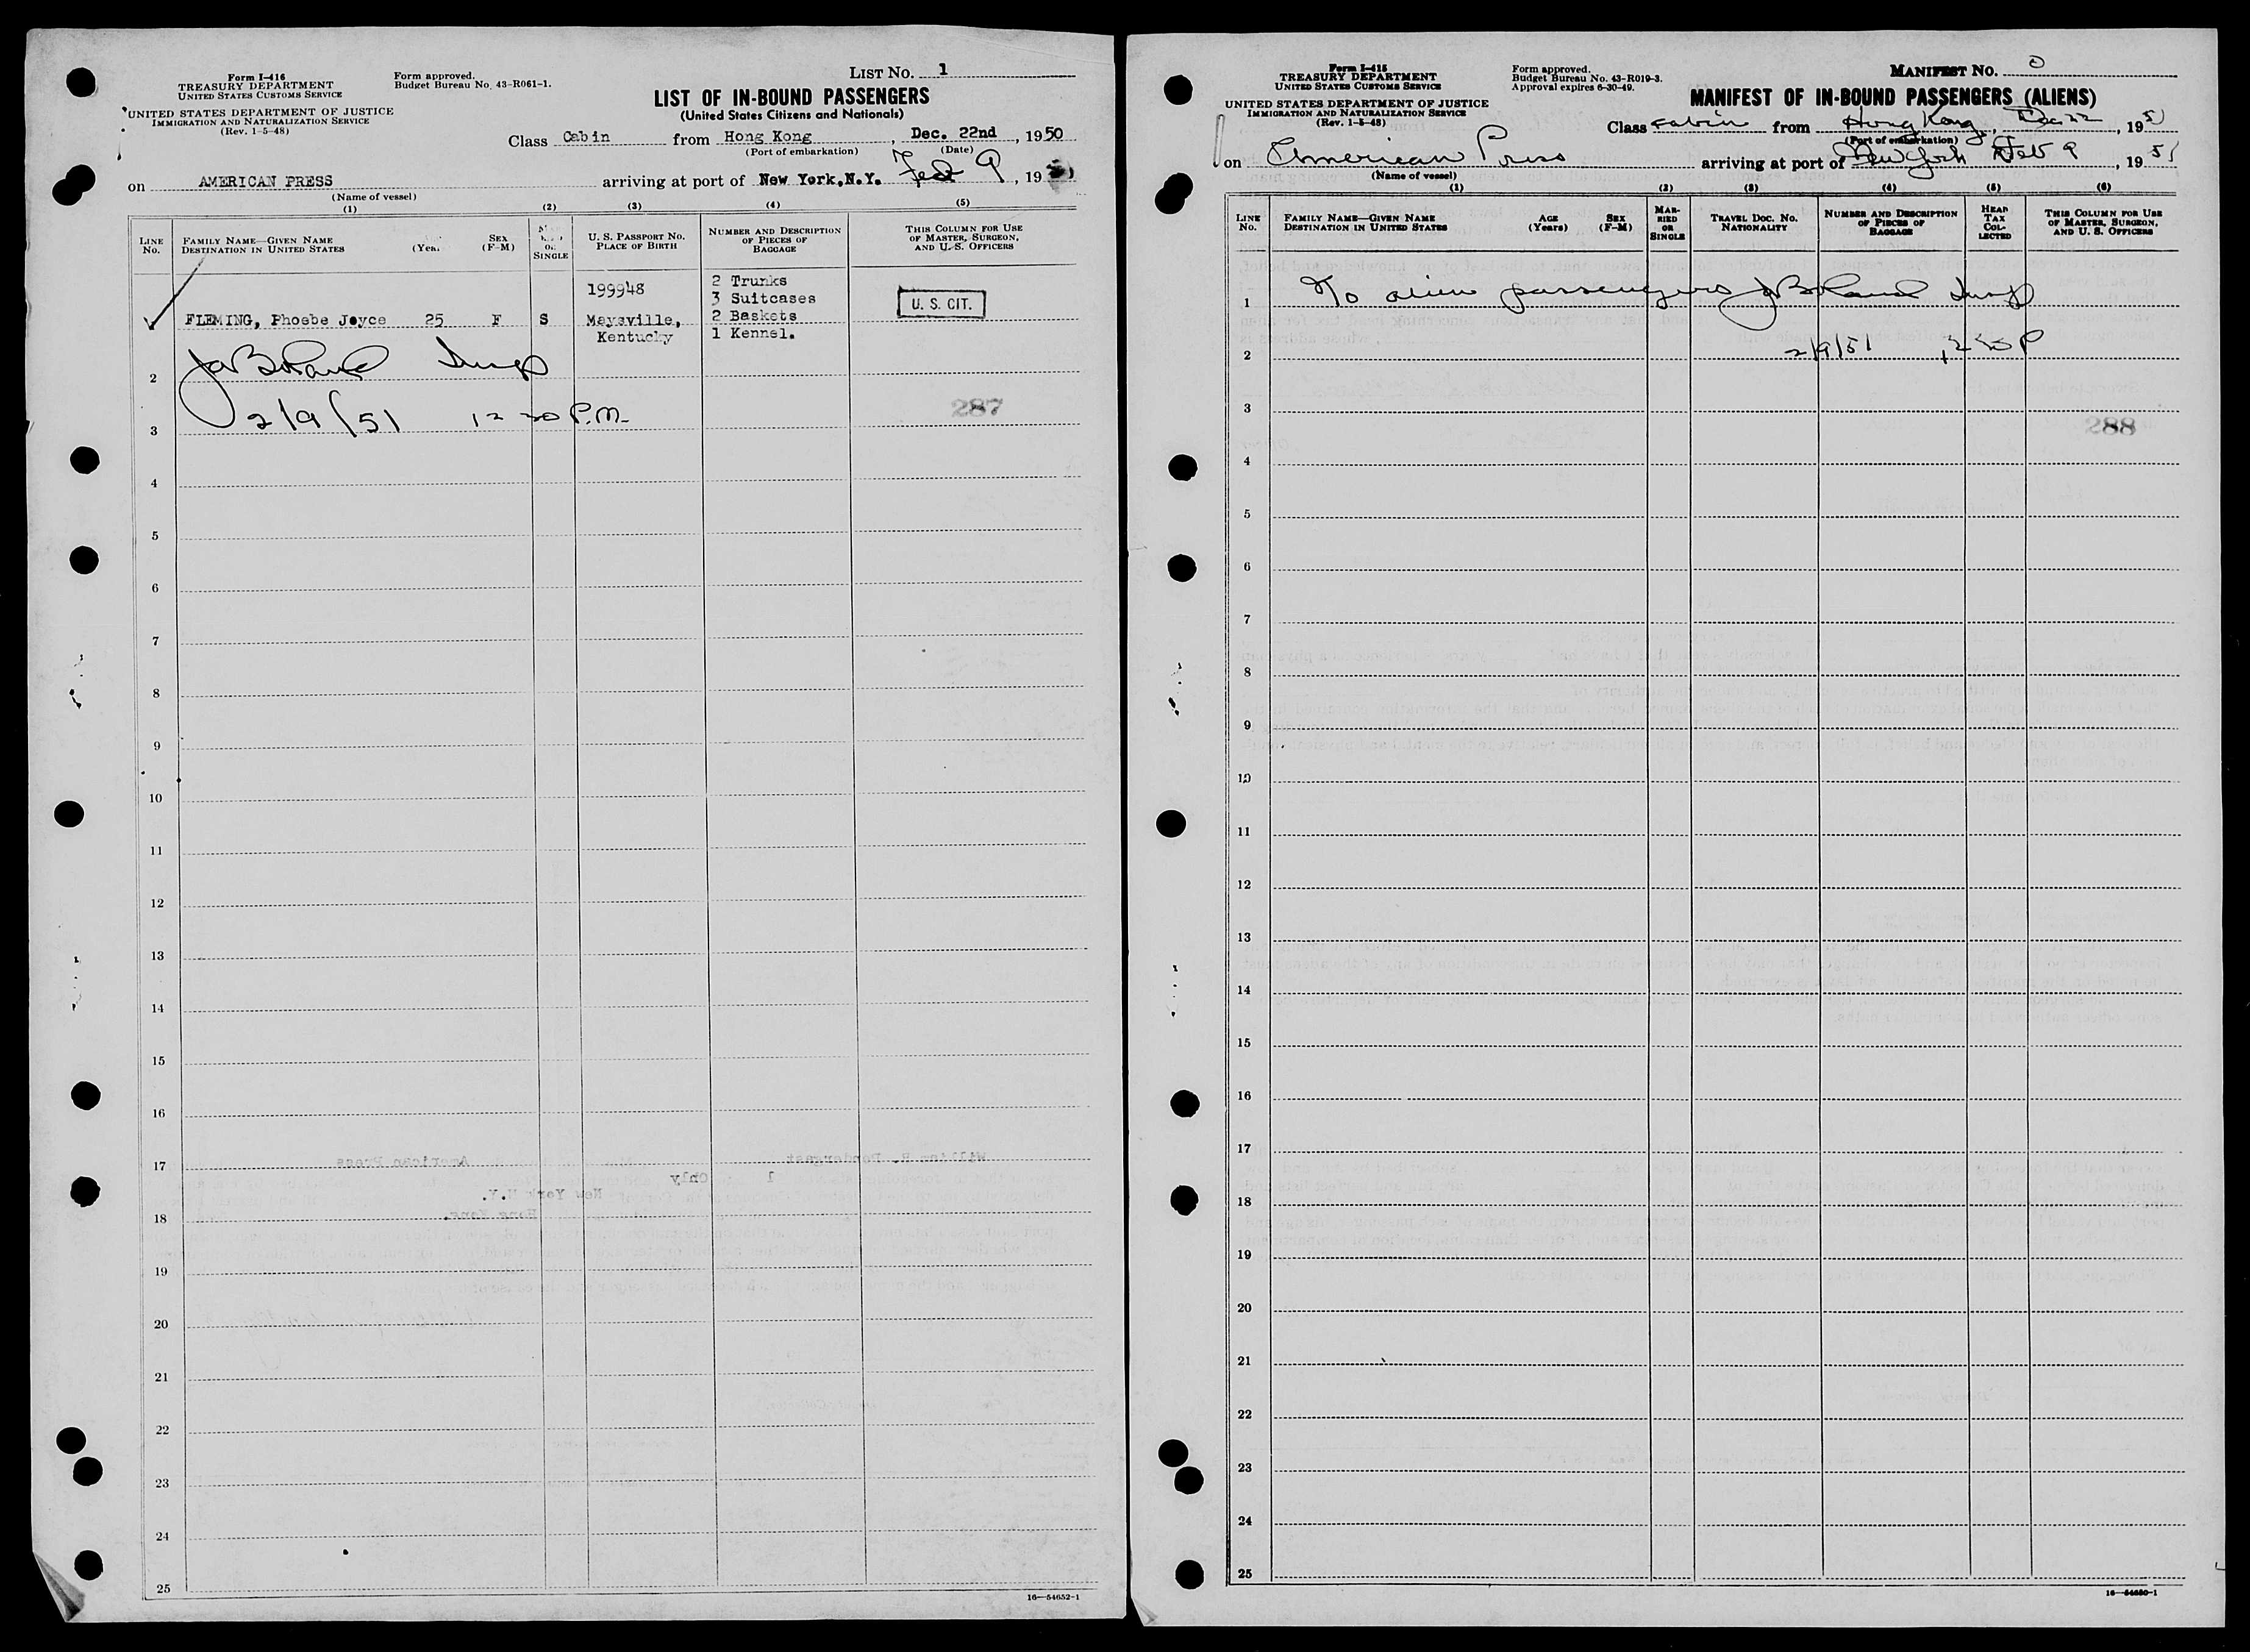 Form I-416
TREASURY DEPARTMENT
UNITED STATES CUSTOMS SERVICE
UNITED STATES DEPARTMENT OF JUSTICE
IMMIGRATION AND NATURALIZATION SERVICE
(Rev. 1-5-48)
Form approved.
Budget Bureau No. 43-R061-1.
LIST NO. 1
LIST OF IN-BOUND PASSENGERS
(United States Citizens and Nationals)
Class Cabin from Hong Kong, Dec. 22nd, 1950
(Port of embarkation) (Date)
on AMERICAN PRESS arriving at port of New York, N.Y. Feb 9, 19
(Name of vessel)
(1) (2) (3) (4) (5)
LINE NO.
FAMILY NAME—GIVEN NAME
DESTINATION IN UNITED STATES
SEX (F-M)
SINGLE
U. S. PASSPORT NO.
PLACE OF BIRTH
NUMBER AND DESCRIPTION OF PIECES OF BAGGAGE
THIS COLUMN FOR USE OF MASTER, SURGEON, AND U. S. OFFICERS
199948
2 Trunks
3 Suitcases
U. S. CIT.
FLEMING, Phoebe Joyce 25 F S Maysville, 2 Baskets
Kentucky 1 Kennel.
2
2/9/51 12 30 P.M.
287
3
4
5
6
7
8
9
10
11
12
13
14
15
16
17
18
19
20
21
22
23
24
25
16—54652-1
Form I-415
TREASURY DEPARTMENT
UNITED STATES CUSTOMS SERVICE
UNITED STATES DEPARTMENT OF JUSTICE
IMMIGRATION AND NATURALIZATION SERVICE
(Rev. 1-5-48)
Form approved.
Budget Bureau No. 43-R019-3.
Approval expires 6-30-49.
MANIFEST NO. 0
MANIFEST OF IN-BOUND PASSENGERS (ALIENS)
Class Cabin from Hong Kong, Dec 22, 19
(Port of embarkation)
on American Press arriving at port of New York Feb 9, 1951
(Name of vessel)
(1) (2) (3) (4) (5) (6)
LINE NO.
FAMILY NAME—GIVEN NAME
DESTINATION IN UNITED STATES
AGE (Years)
SEX (F-M)
MARRIED OR SINGLE
TRAVEL DOC. NO.
NATIONALITY
NUMBER AND DESCRIPTION OF PIECES OF BAGGAGE
HEAD TAX COLLECTED
THIS COLUMN FOR USE OF MASTER, SURGEON, AND U. S. OFFICERS
1 No alien passengers
2 2/9/51
3
288
4
5
6
7
8
9
10
11
12
13
14
15
16
17
18
19
20
21
22
23
24
25